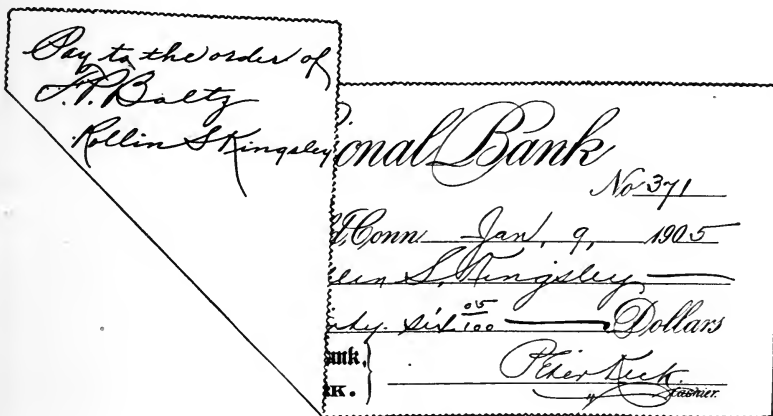 Pay to the order of
F. P. Baltz
Rollin S Kingsley
onal Bank
No 371
d, Conn Jan, 9, 1905
llin S. Kingsley
six 05/100 Dollars
ank,
K.
Peter Keck
Cashier.